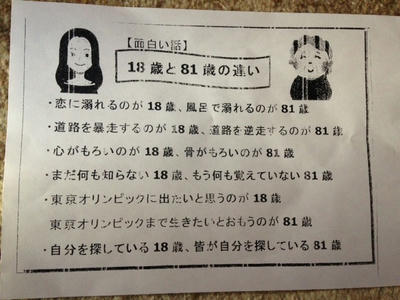 【面白い話】
18歳と81歳の違い
・恋に溺れるのが18歳、風呂で溺れるのが81歳
・道路を暴走するのが18歳、道路を逆走するのが81歳
・心がもろいのが18歳、骨がもろいのが81歳
・まだ何も知らない18歳、もう何も覚えていない81歳
・東京オリンピックに出たいと思うのが18歳
東京オリンピックまで生きたいとおもうのが81歳
・自分を探している18歳、皆が自分を探している81歳